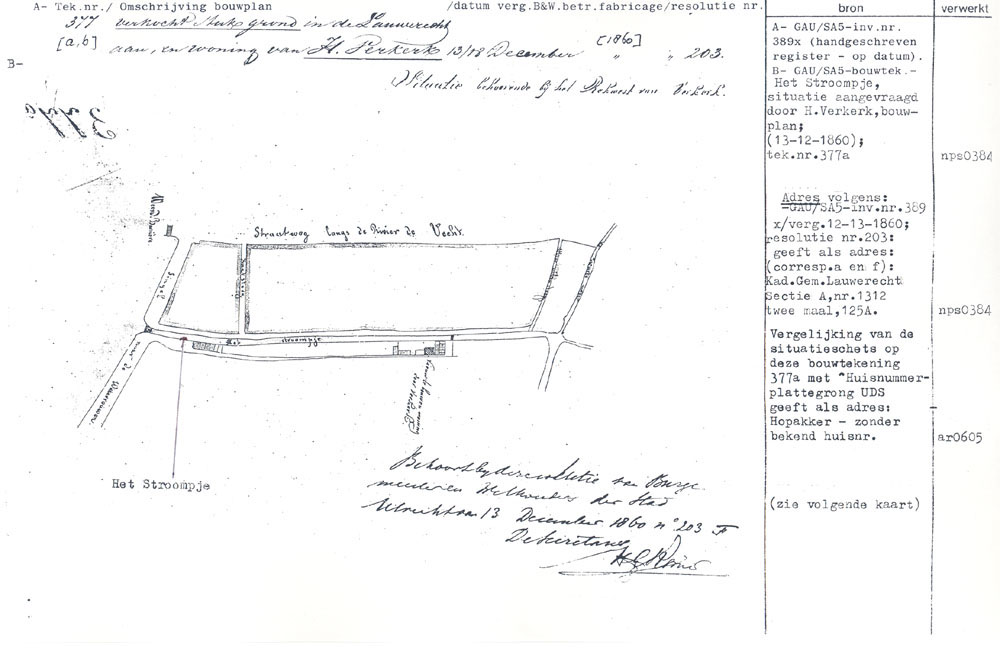 A- Tek.nr./ Omschrijving bouwplan /datum verg.B&W.betr.fabricage/resolutie nr.
bron
verwerkt
377 verkocht stuk grond in de Lauwerecht
[a,b] aan, en woning van H. Perkerk 13/18 December [1860] " " 203.
B-
Situatie behoorende bij het Rekwest van Verkerk.
377a
Straatweg langs de Rivier de Vecht.
Singel
Het stroompje
naar de
Het Stroompje
Behoort by de resolutie van Burge
meester en Wethouders der Stad
Utrecht van 13 December 1860 n° 203 F
De Secretaris
A- GAU/SA5-inv.nr.
389x (handgeschreven
register - op datum).
B- GAU/SA5-bouwtek.-
Het Stroompje,
situatie aangevraagd
door H.Verkerk,bouw-
plan;
(13-12-1860);
tek.nr.377a
nps0384
Adres volgens:
-GAU/SA5-inv.nr.389
x/verg.12-13-1860;
resolutie nr.203:
geeft als adres:
(corresp.a en f):
Kad.Gem.Lauwerecht
Sectie A,nr.1312
twee maal,125A.
nps0384
Vergelijking van de
situatieschets op
deze bouwtekening
377a met "Huisnummer-
plattegrong UDS
geeft als adres:
Hopakker - zonder
bekend huisnr.
ar0605
(zie volgende kaart)